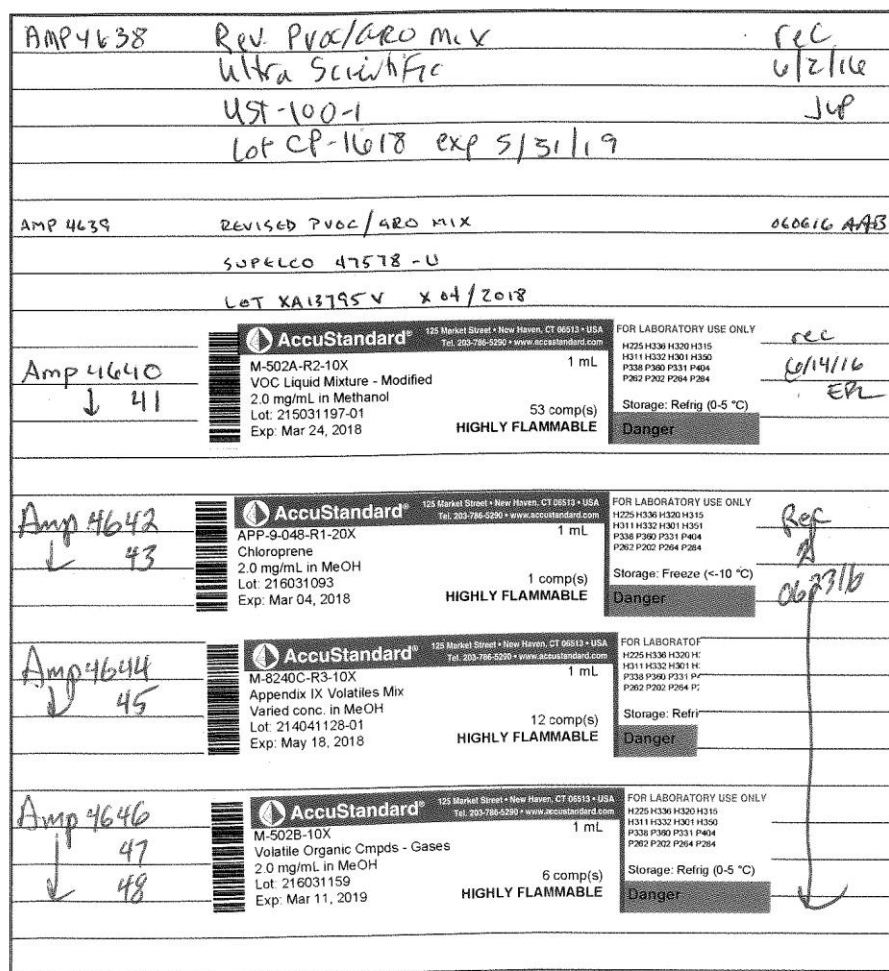 AMP4638 Rev. PVOC/GRO Mix rec
Ultra Scientific 6/2/16
UST-100-1 JVP
Lot CP-1618 exp 5/31/19
AMP 4639 REVISED PVOC/GRO MIX 060616 AAB
SUPELCO 47578-U
LOT XA13795V X 04/2018
Amp 4640 rec
↓ 41 6/14/16
EPL
AccuStandard® 125 Market Street • New Haven, CT 06513 • USA
Tel. 203-786-5290 • www.accustandard.com
M-502A-R2-10X 1 mL
VOC Liquid Mixture - Modified
2.0 mg/mL in Methanol
Lot: 215031197-01 53 comp(s)
Exp: Mar 24, 2018 HIGHLY FLAMMABLE
FOR LABORATORY USE ONLY
H225 H336 H320 H315
H311 H332 H301 H350
P338 P360 P331 P404
P262 P202 P264 P284
Storage: Refrig (0-5 °C)
Danger
Amp 4642 Rec
↓ 43
062316
AccuStandard® 125 Market Street • New Haven, CT 06513 • USA
Tel. 203-786-5290 • www.accustandard.com
APP-9-048-R1-20X 1 mL
Chloroprene
2.0 mg/mL in MeOH
Lot: 216031093 1 comp(s)
Exp: Mar 04, 2018 HIGHLY FLAMMABLE
FOR LABORATORY USE ONLY
H225 H336 H320 H315
H311 H332 H301 H351
P338 P360 P331 P404
P262 P202 P264 P284
Storage: Freeze (<-10 °C)
Danger
Amp 4644
↓ 45
AccuStandard® 125 Market Street • New Haven, CT 06513 • USA
Tel. 203-786-5290 • www.accustandard.com
M-8240C-R3-10X 1 mL
Appendix IX Volatiles Mix
Varied conc. in MeOH
Lot: 214041128-01 12 comp(s)
Exp: May 18, 2018 HIGHLY FLAMMABLE
FOR LABORATOR
H225 H336 H320 H
H311 H332 H301 H
P338 P360 P331 P
P262 P202 P264 P
Storage: Refri
Danger
Amp 4646
47
↓ 48
AccuStandard® 125 Market Street • New Haven, CT 06513 • USA
Tel. 203-786-5290 • www.accustandard.com
M-502B-10X 1 mL
Volatile Organic Cmpds - Gases
2.0 mg/mL in MeOH
Lot: 216031159 6 comp(s)
Exp: Mar 11, 2019 HIGHLY FLAMMABLE
FOR LABORATORY USE ONLY
H225 H336 H320 H315
H311 H332 H301 H350
P338 P360 P331 P404
P262 P202 P264 P284
Storage: Refrig (0-5 °C)
Danger